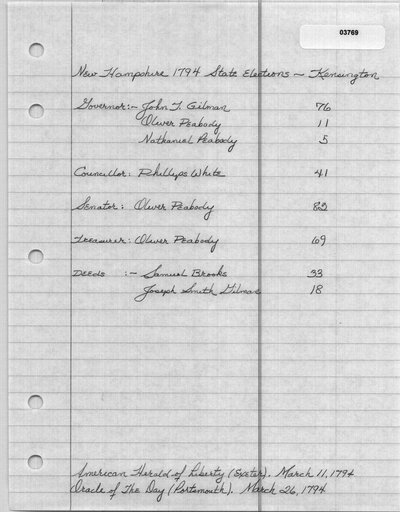 03769
New Hampshire 1794 State Elections ~ Kensington
Governor:~ John T. Gilman 76
Oliver Peabody 11
Nathaniel Peabody 5
Councillor: Phillips White 41
Senator: Oliver Peabody 83
Treasurer: Oliver Peabody 69
Deeds :~ Samuel Brooks 33
Joseph Smith Gilman 18
American Herald of Liberty (Exeter). March 11, 1794
Oracle of The Day (Portsmouth). March 26, 1794